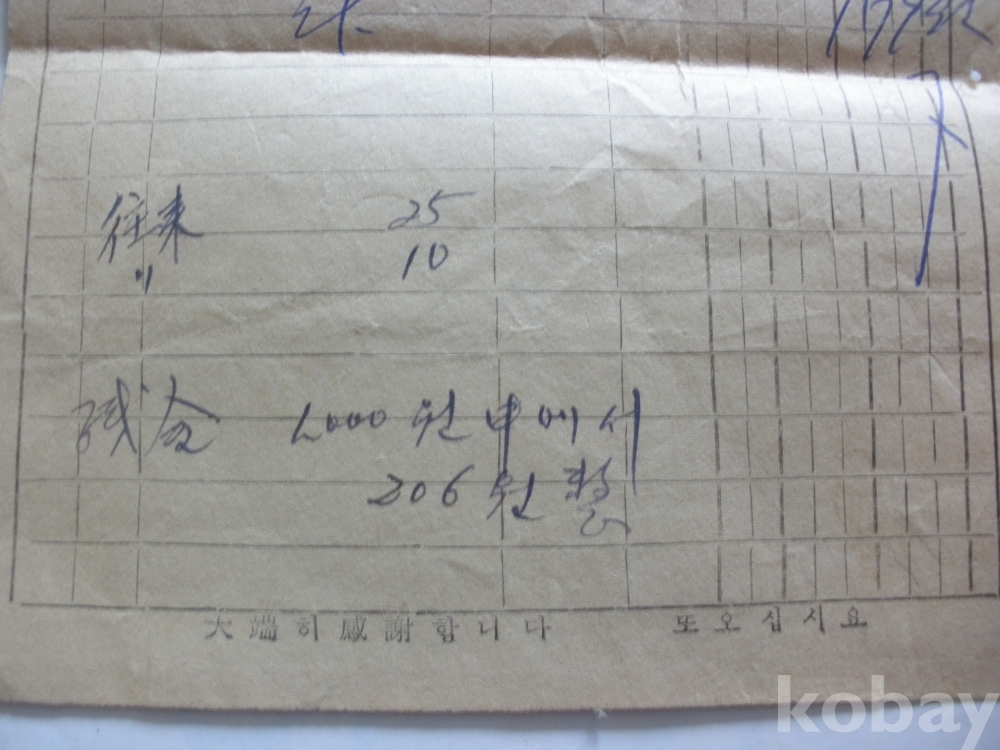 往来 25
〃 10
残金 1,000원中에서
206원整
大端히感謝합니다 또오십시요
kobay